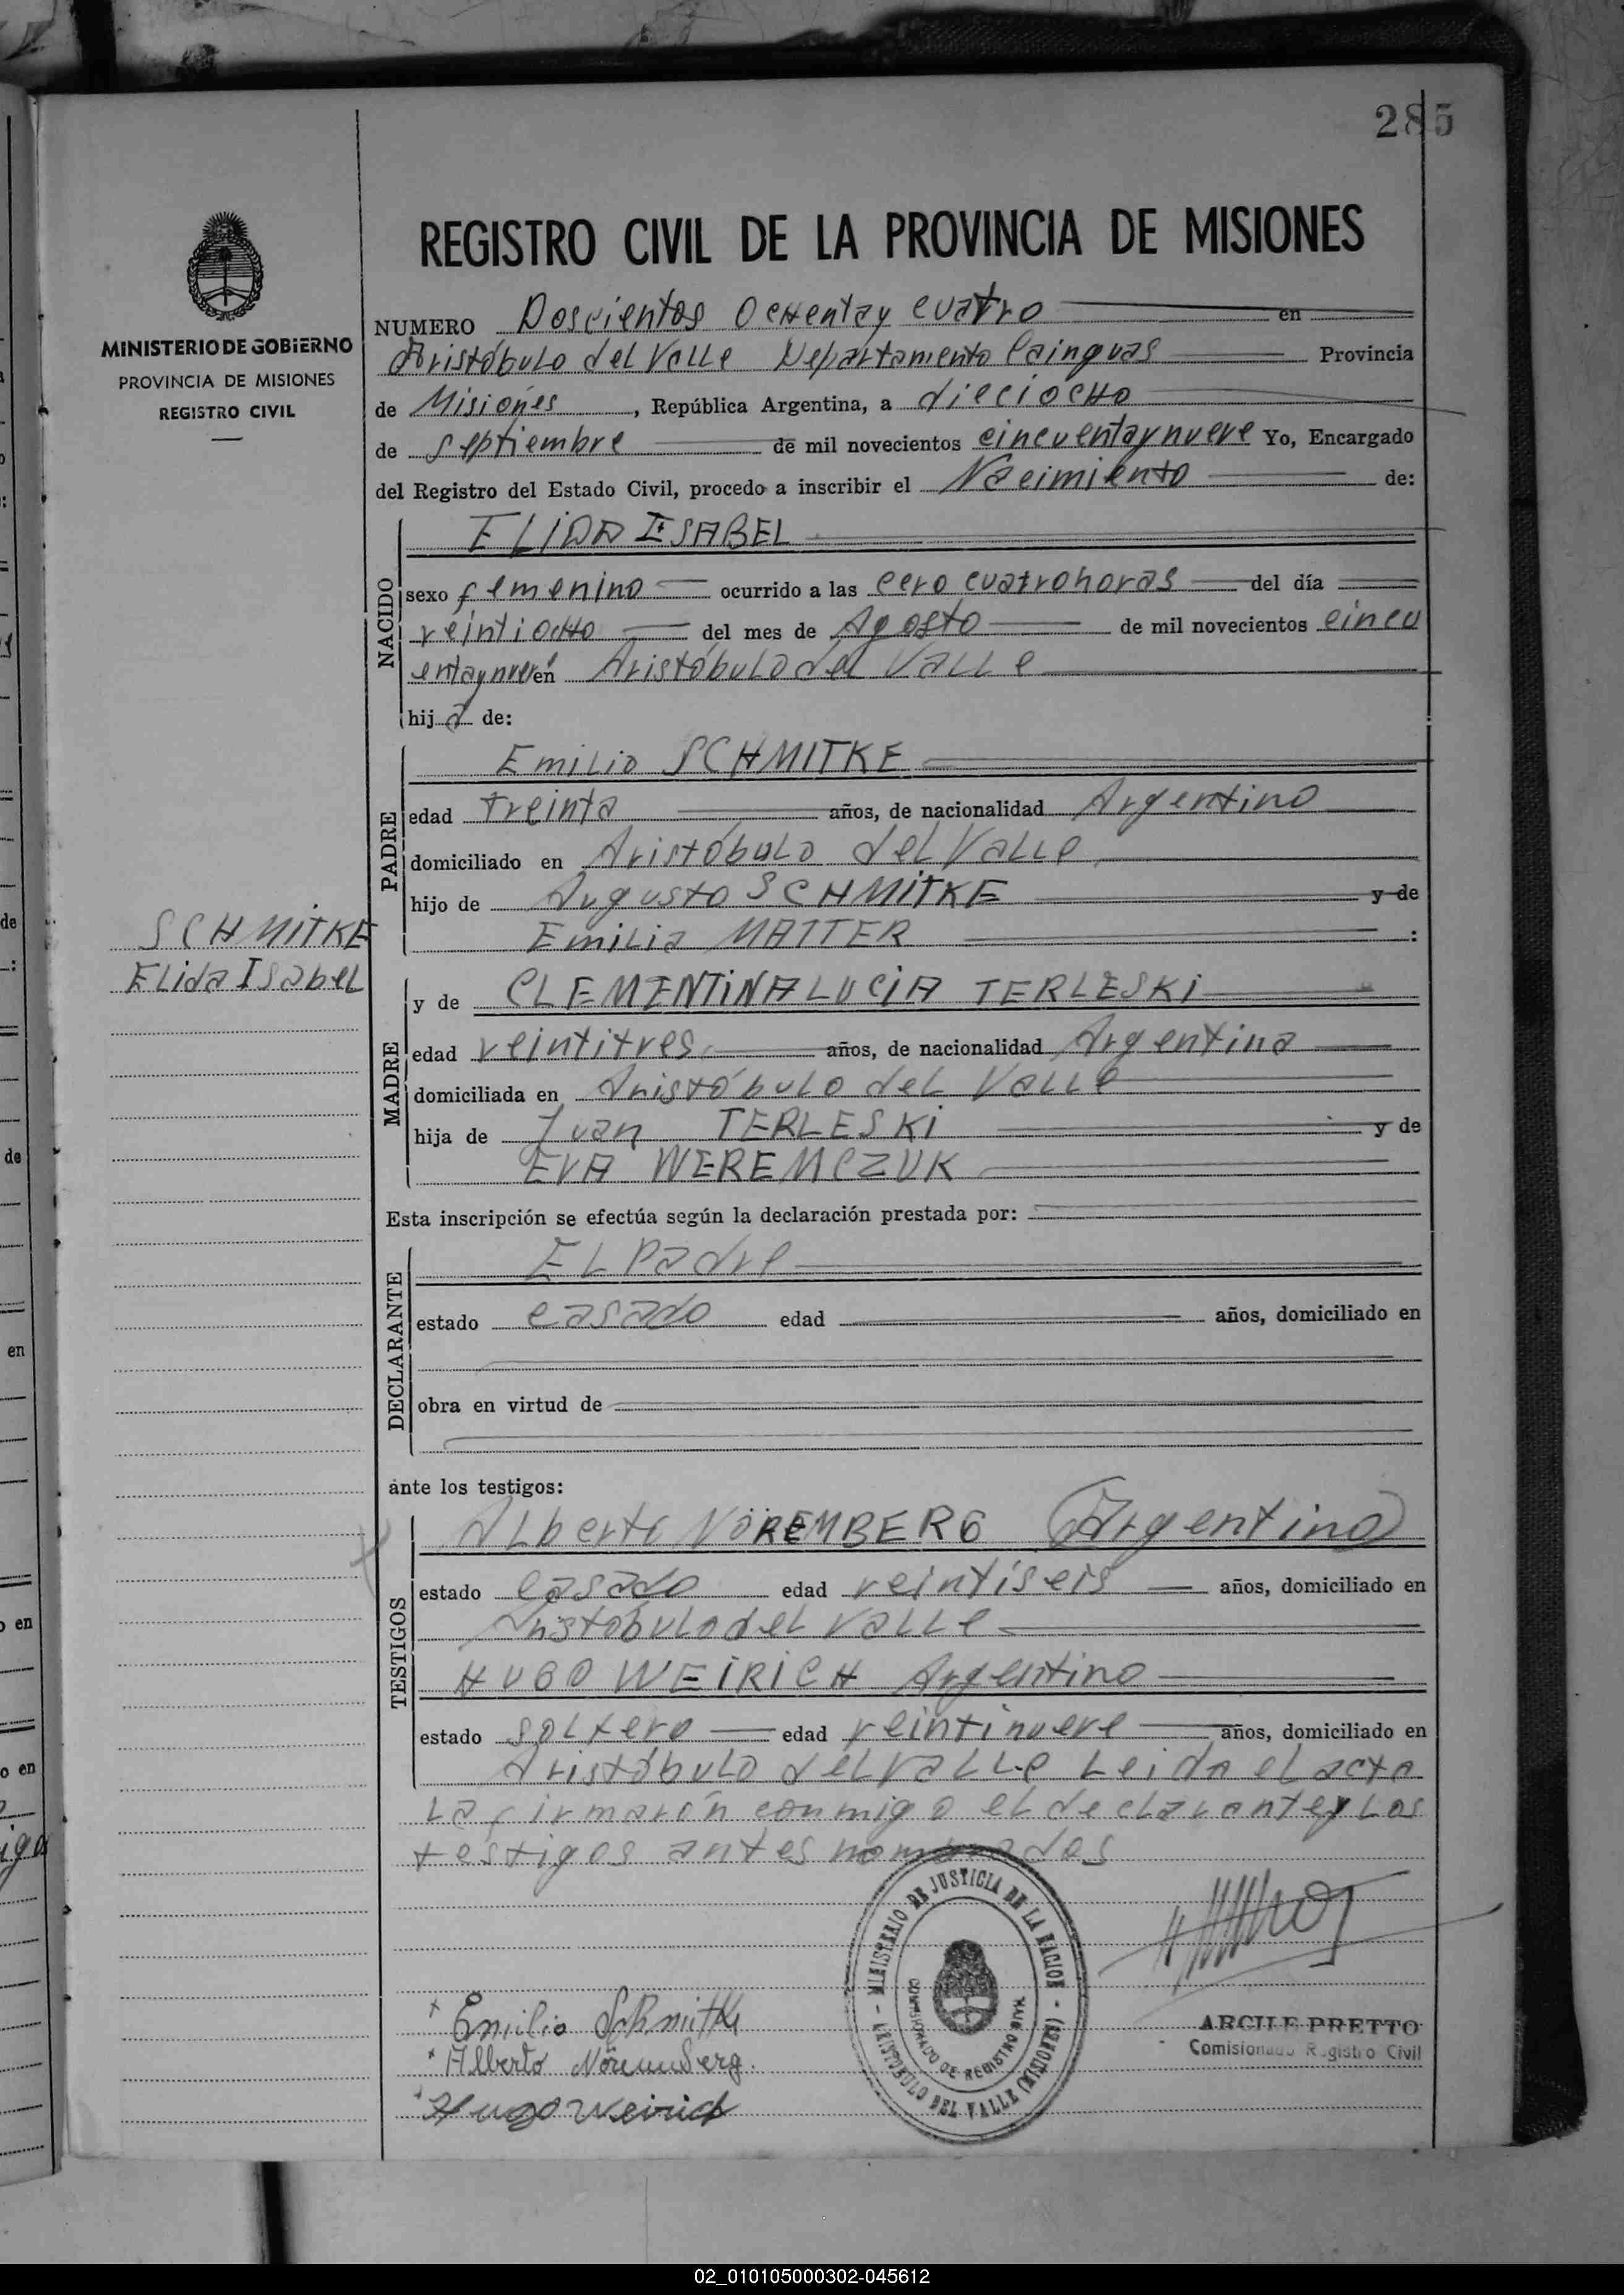 285
MINISTERIO DE GOBIERNO
PROVINCIA DE MISIONES
REGISTRO CIVIL
SCHMITKE
Elida Isabel
REGISTRO CIVIL DE LA PROVINCIA DE MISIONES
NUMERO Doscientos Ochentay cuatro en
Aristóbulo del Valle Departamento Cainguas Provincia
de Misiones, República Argentina, a dieciocho
de septiembre de mil novecientos cincuentaynueve Yo, Encargado
del Registro del Estado Civil, procedo a inscribir el Nacimiento de:
NACIDO
ELIDA ISABEL
sexo femenino ocurrido a las cero cuatro horas del día
veintiocho del mes de Agosto de mil novecientos cincu
entaynueve en Aristóbulo del Valle
hija de:
PADRE
Emilio SCHMITKE
edad treinta años, de nacionalidad Argentino
domiciliado en Aristóbulo del Valle
hijo de Augusto SCHMITKE y de
Emilia MATTER :
MADRE
y de CLEMENTINA LUCIA TERLESKI
edad veintitres años, de nacionalidad Argentina
domiciliada en Aristóbulo del Valle
hija de Juan TERLESKI y de
EVA WEREMCZUK
Esta inscripción se efectúa según la declaración prestada por:
DECLARANTE
El Padre
estado casado edad años, domiciliado en
obra en virtud de
ante los testigos:
TESTIGOS
Alberto NÖREMBERG (Argentino)
estado casado edad veintiseis años, domiciliado en
Aristóbulo del Valle
HUGO WEIRICH Argentino
estado soltero edad veintinueve años, domiciliado en
Aristóbulo del Valle Leida el acta
la firmarón conmigo el declarante y los
testigos antes nombrados
MINISTERIO DE JUSTICIA DE LA NACION - ARISTOBULO DEL VALLE (MISIONES) -
COMISIONADO DE REGISTRO CIVIL
Emilio Schmitke
Alberto Nöremberg.
Hugo Weirich
ARCILE PRETTO
Comisionado Registro Civil
02_010105000302-045612